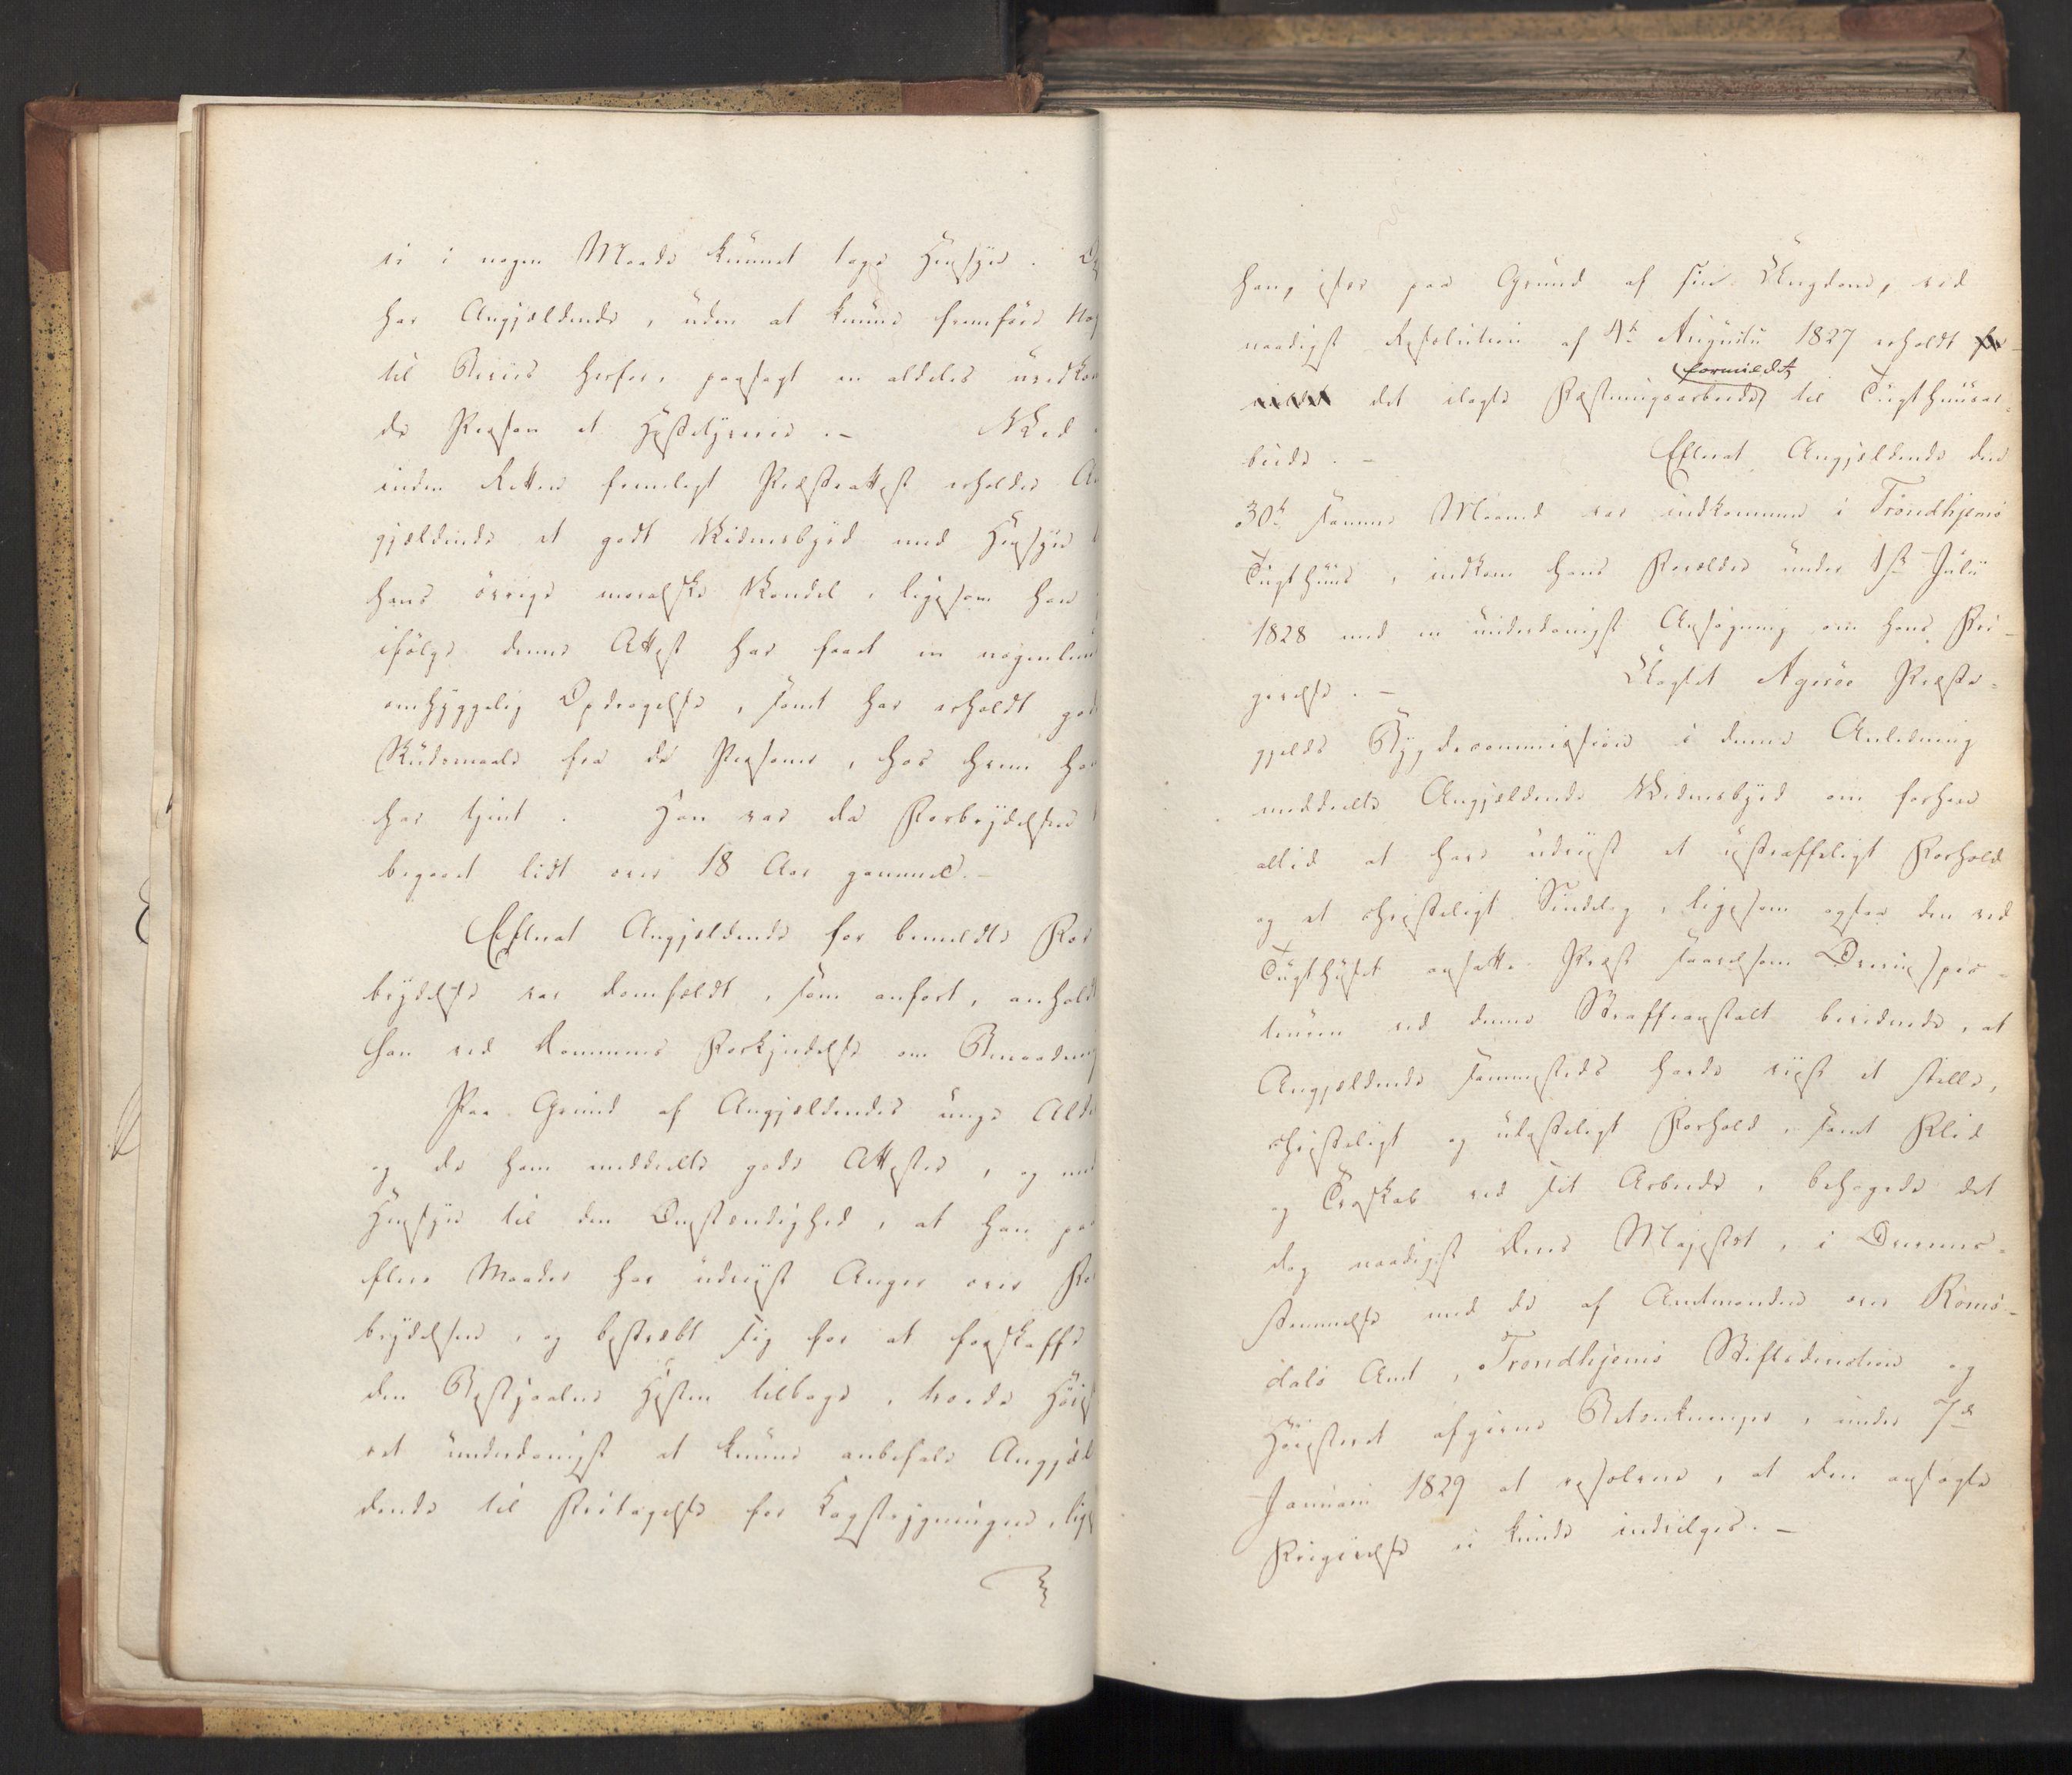 ei i nogen Maade kunnet tage Hensyn. De
har Angjældende, uden at kunne fremføre Nog
til Beviis herfor, paasagt en aldeles uvedkom
de Person et Hestetyverie. – Ved
inden Retten fremlagt Præsteattest erholder An
gjældende et godt Vidnesbyrd med Hensyn
hans øvrige moralske Vandel, ligesom han
ifølge denne Attest har faaet en nogenlun
omhyggelig Opdragelse, samt har erholdt god
Skudsmaale fra de Personer, hos hvem han
har tjent. Han var da Forbrydelsen
begaaet lidt over 18 Aar gammel. –
Efterat Angjældende for bemeldte For
brydelse var domfældt, som anført, anholdt
han ved Dommens Forkyndelse om Benaadning
Paa Grund af Angjældendes unge Alde
og de ham meddeelte gode Attester, og med
Hensyn til den Omstændighed, at han paa
flere Maader har udviist Anger over For
brydelsen, og bestræbt sig for at forskaffe
den Bestjaalne Hesten tilbage, troede Høieste
ret underdanigst at kunne anbefale Angjæl
dende til Fritagelse for Kagstrygningen, lige
han, især paa Grund af sin Ungdom, ved
naadigst Resolution af 4de Augusti 1827 erholdt
formildet
det idømte Fæstningsarbeide til Tugthuusar-
beide. – Efterat Angjældende den
30te samme Maaned var indkommen i Trondhjems
Tugthuus, indkom hans Forældre under 1ste Julii
1828 med en underdanigst Ansøgning om hans Fri-
givelse. – Uagtet Agerøe Præste-
gjelds Bygdecommission i denne Anledning
meddeelte Angjældende Vidnesbyrd om forhen
altid at have udviist et ustraffeligt Forhold
og et christeligt Sindelag, ligesom ogsaa den ved
Tugthuset ansatte Præst saavelsom Oeconomi
ved denne Straffeanstalt bevidnede, at
Angjældende sammesteds havde viist et stille,
christeligt og ulasteligt Forhold, samt Flid
og Troskab ved sit Arbeide, behagede det
dog naadigst Deres Majestæt, i Overeens-
stemmelse med de af Amtmanden over Roms-
dals Amt, Trondhjems Stiftsdirection og
Høiesteret afgivne Betænkninger, under 7de
Januarii 1829 at resolvere, at den ansøgte
Frigivelse ei kunde indvilges. –